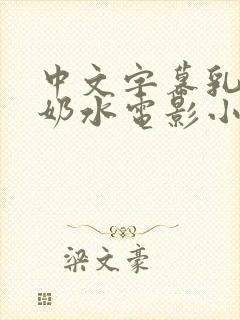 中文字幕乳
奶水电影小
梁文豪